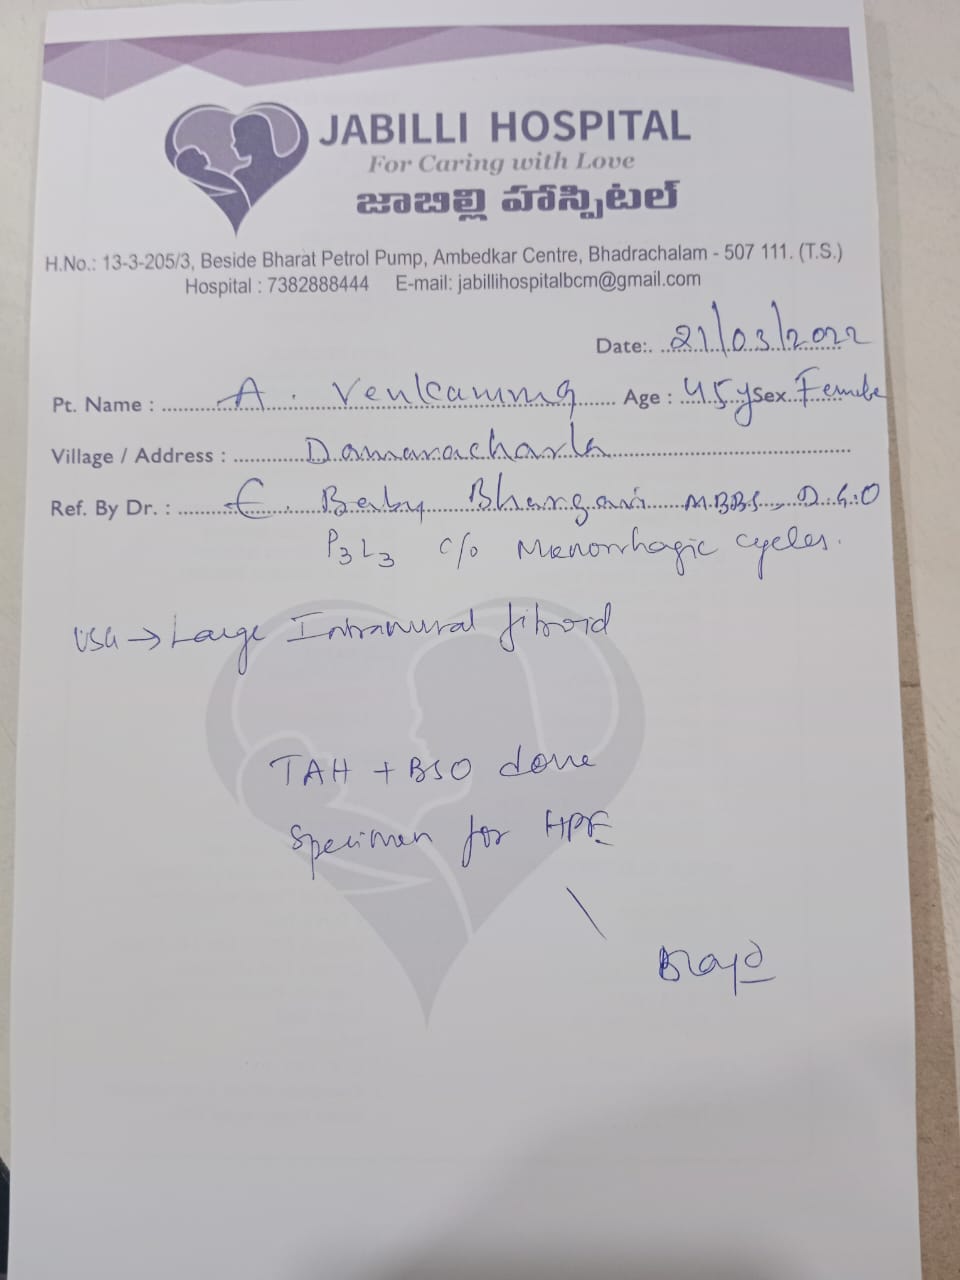 JABILLI HOSPITAL
For Caring with Love
జాబిల్లి హాస్పిటల్
H.No.: 13-3-205/3, Beside Bharat Petrol Pump, Ambedkar Centre, Bhadrachalam - 507 111. (T.S.)
Hospital : 7382888444 E-mail: jabillihospitalbcm@gmail.com
Date:. 21/03/2022
Pt. Name : A. Venkamma Age : 45y Sex Female
Village / Address : Damaracharla
Ref. By Dr. : E. Baby Bhargavi M.BBS., D.G.O
P3L3 c/o Menorrhagic cycles.
USG → Large Intramural fibroid
TAH + BSO done
Specimen for HPE